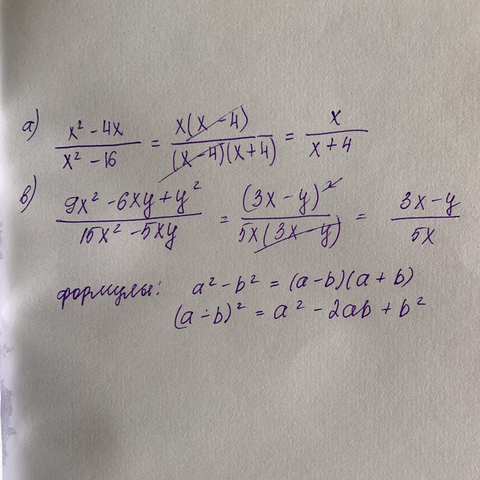 а) x² - 4x / x² - 16 = x(x - 4) / (x - 4)(x + 4) = x / x + 4
в) 9x² - 6xy + y² / 15x² - 5xy = (3x - y)² / 5x(3x - y) = 3x - y / 5x
формулы: a² - b² = (a - b)(a + b)
(a - b)² = a² - 2ab + b²